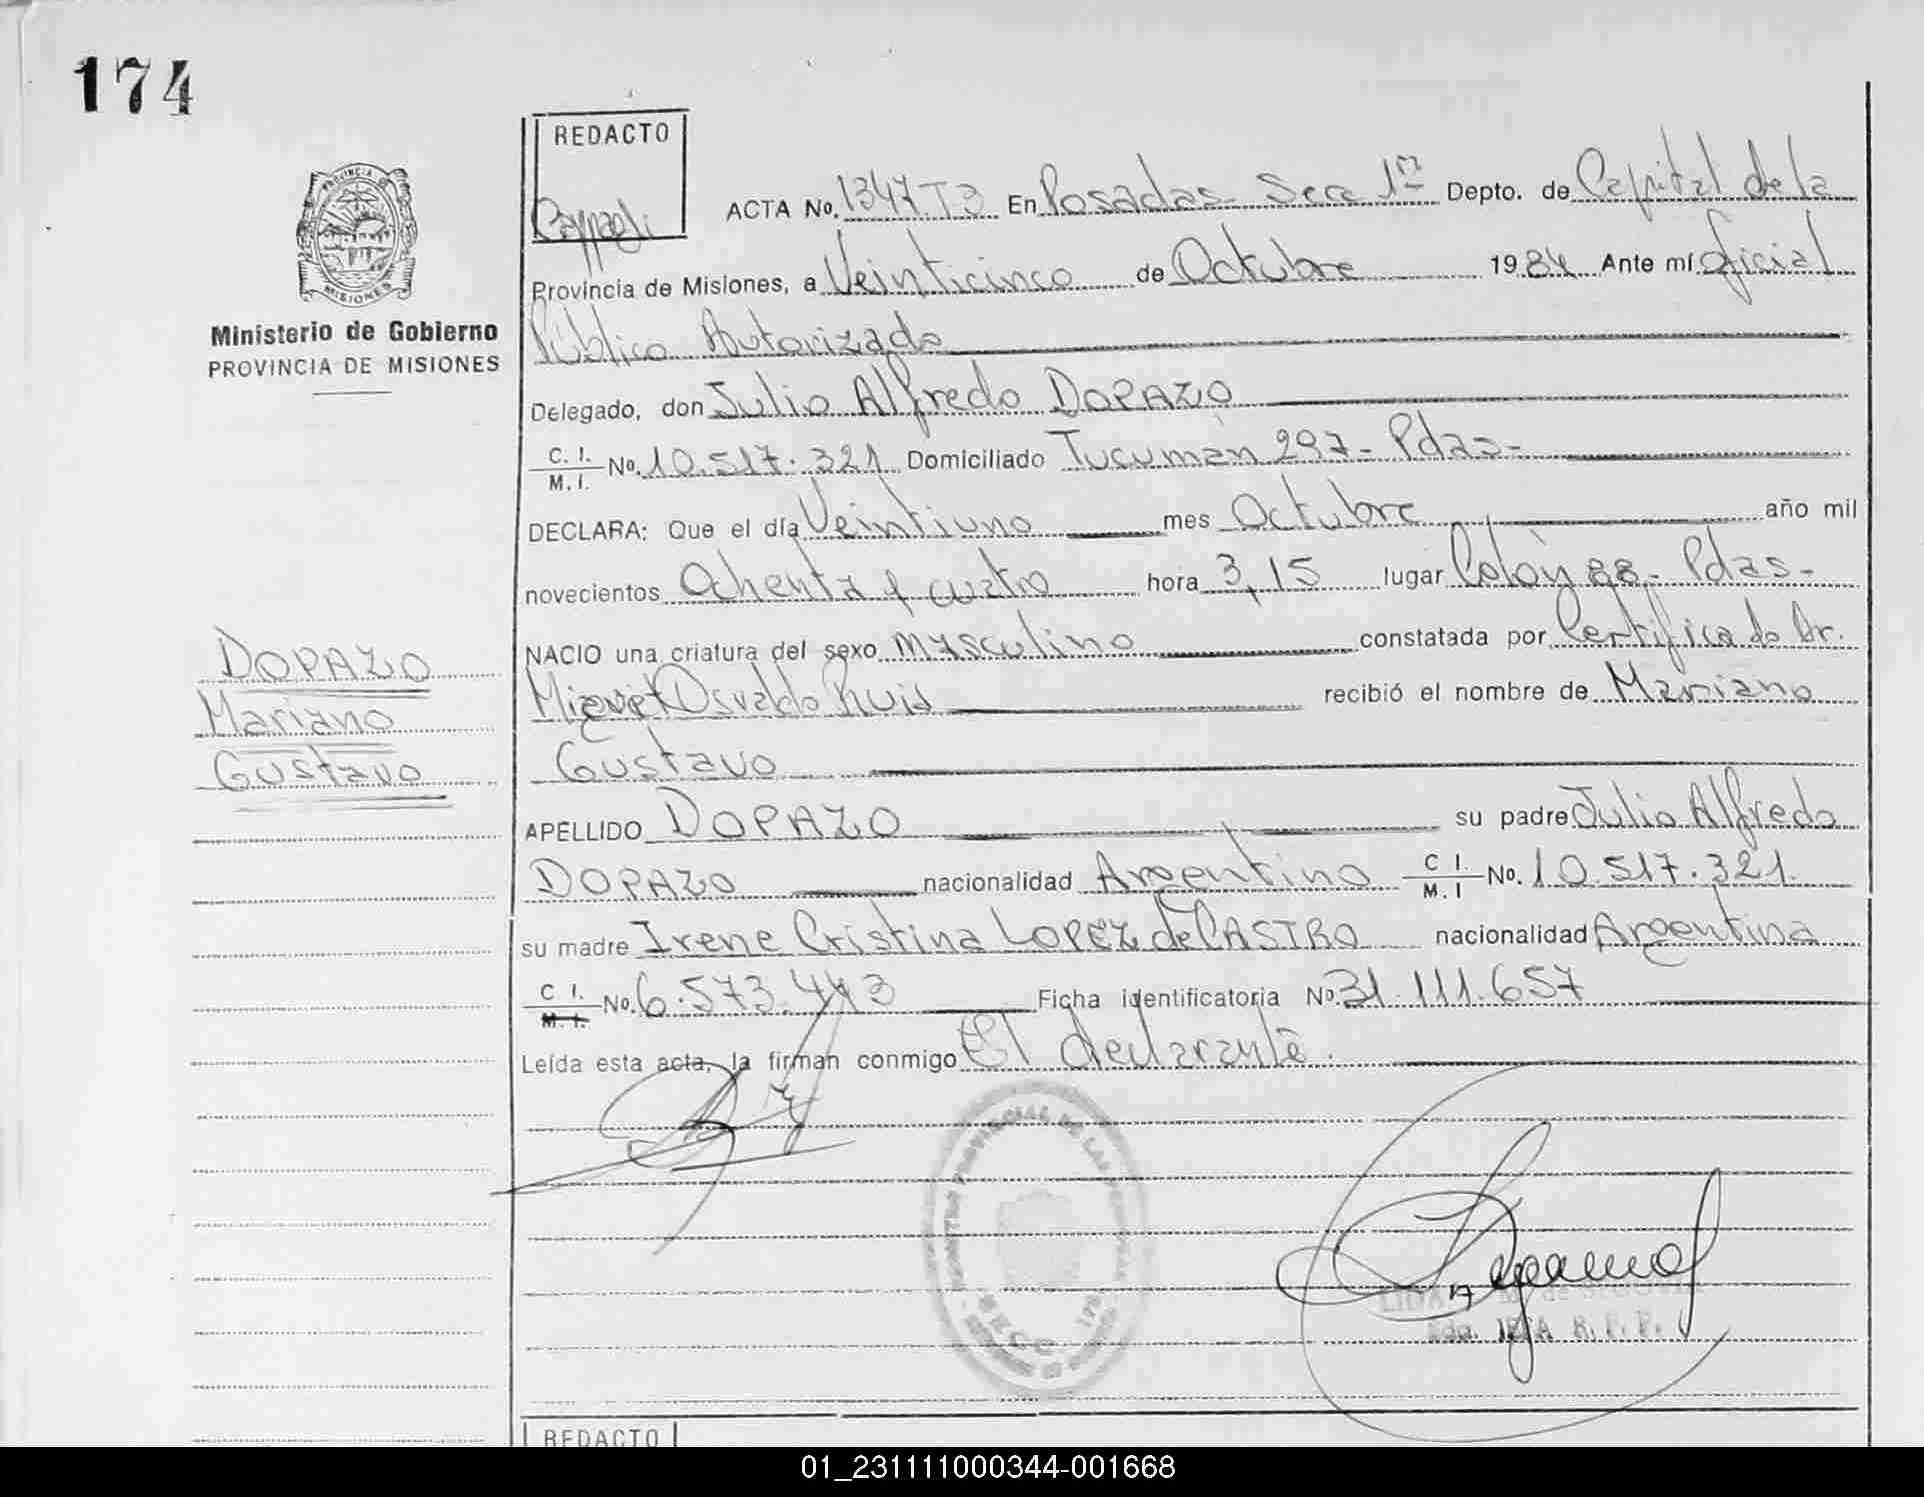 174
REDACTO
ACTA No. 1347 T3 En Posadas - Secc 1ra Depto. de Capital de la
Provincia de Misiones, a Veinticinco de Octubre 1984 Ante mí Oficial
Público Autorizado
PROVINCIA DE
MISIONES
Ministerio de Gobierno
PROVINCIA DE MISIONES
Delegado, don Julio Alfredo DOPAZO
C. I. M. I. No. 10.517.321 Domiciliado Tucumán 297 - Pdas -
DECLARA: Que el día Veintiuno mes Octubre año mil
novecientos Ochenta y cuatro hora 3,15 lugar Colón 88 - Pdas -
NACIO una criatura del sexo masculino constatada por Certificado Dr.
Miguel Osvaldo Ruis recibió el nombre de Mariano
Gustavo
DOPAZO
Mariano
Gustavo
APELLIDO DOPAZO su padre Julio Alfredo
DOPAZO nacionalidad Argentino C I. M. I No. 10.517.321.
su madre Irene Cristina LOPEZ de CASTRO nacionalidad Argentina
C I. M. I. No. 6.573.443 Ficha identificatoria No. 31.111.657
Leída esta acta, la firman conmigo El declarante.
REDACTO
01_231111000344-001668